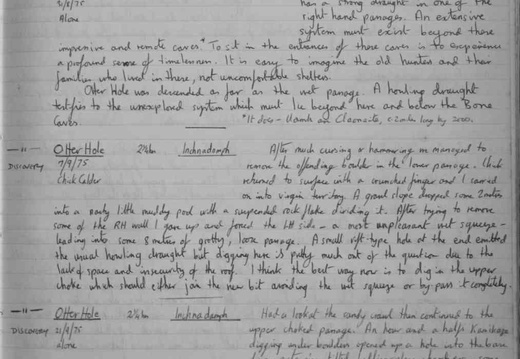 2/8/75
Alone
has a strong draught in one of the
right hand passages. An extensive
system must exist beyond these
impressive and remote caves.* To sit in the entrances of these caves is to experience
a profound sense of timelessness. It is easy to imagine the old hunters and their
families who lived in these, not uncomfortable shelters.
Otter Hole was descended as far as the wet passage. A howling draught
testifies to the unexplored system which must lie beyond here and below the Bone
Caves. *It does - Uamh an Claonaite, c. 2 miles long by 2000.
— " — Otter Hole 2½hrs Inchnadamph After much cursing & hammering we managed to
DISCOVERY 7/9/75 remove the offending boulder in the lower passage. Chick
Chick Calder returned to surface with a crunched finger and I carried
on into virgin territory. A gravel slope dropped some 2 metres
into a nasty little muddy pool with a suspended rock flake dividing it. After trying to remove
some of the RH wall I gave up and forced the LH side - a most unpleasant wet squeeze -
leading into some 8 metres of grotty, loose passage. A small rift-type hole at the end emitted
the usual howling draught but digging here is pretty much out of the question due to the
lack of space and insecurity of the roof. I think the best way now is to dig in the upper
choke which should either join the new bit avoiding the wet squeeze or by pass it completely.
— " — Otter Hole 2¼hrs Inchnadamph Had a look at the sandy crawl then continued to the
DISCOVERY 21/9/75 upper choked passage. An hour and a half's Kamikaze
alone digging under boulders opened up a hole into the